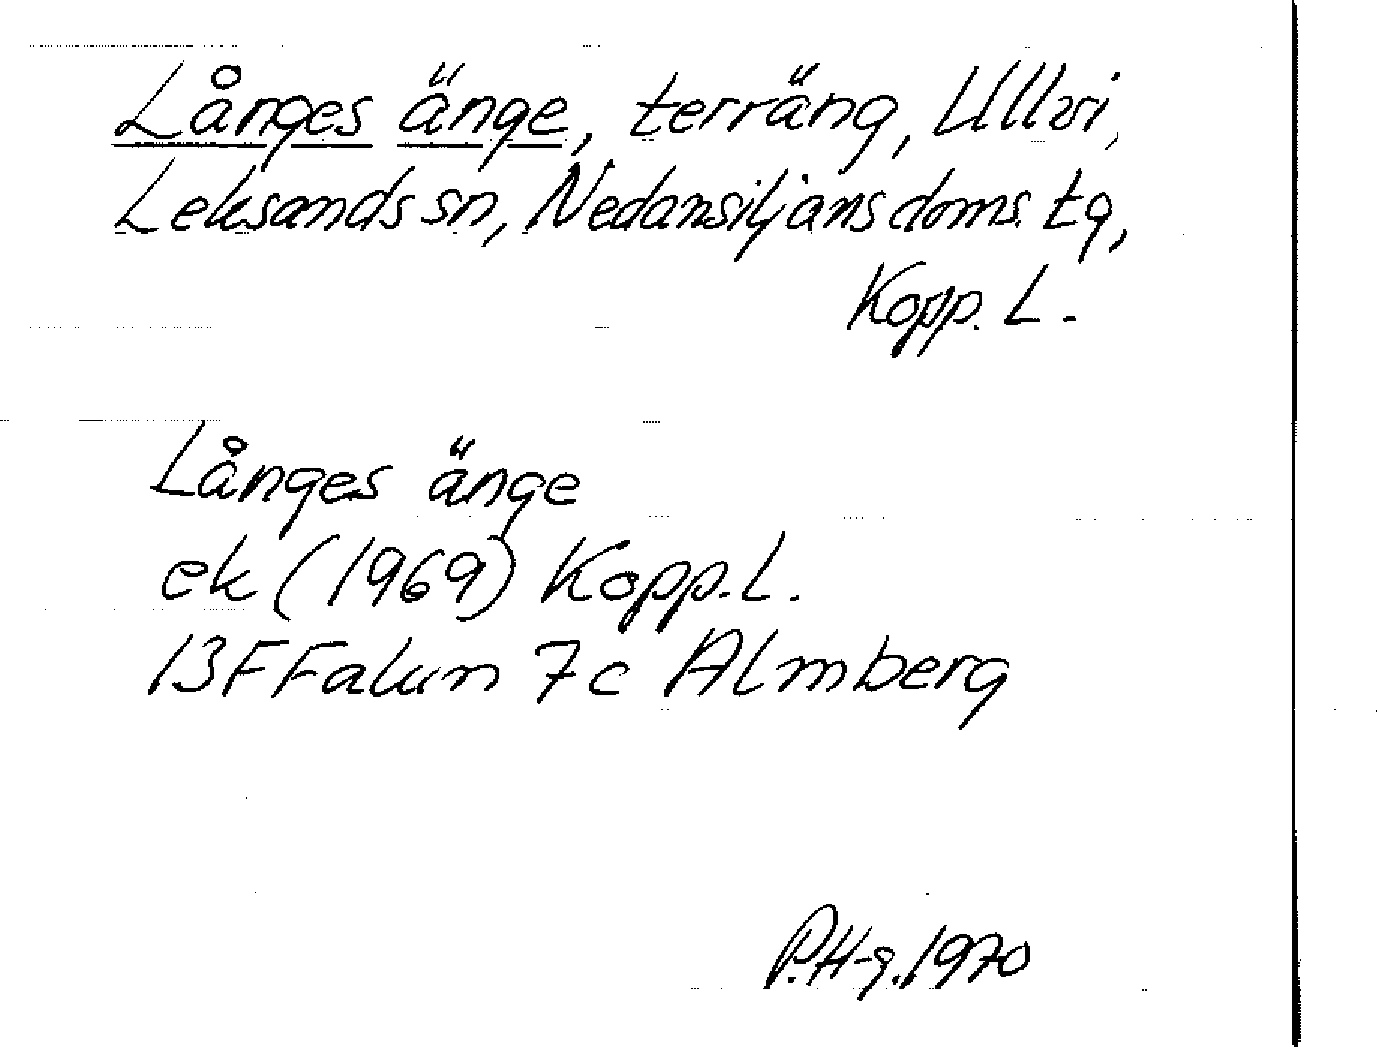 Långes änge, terräng, Ullvi,
Leksands sn, Nedansiljans doms. tg,
Kopp. L.
Långes änge
ek (1969) Kopp. L.
13F Falun 7c Almberg
P.H-g. 1970